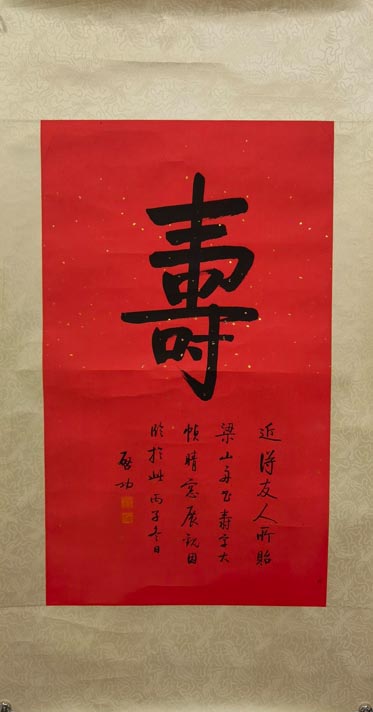 壽
近得友人所貽
梁山舟書壽字大
幀晴窗展觀因
臨於此丙子冬日
啓功